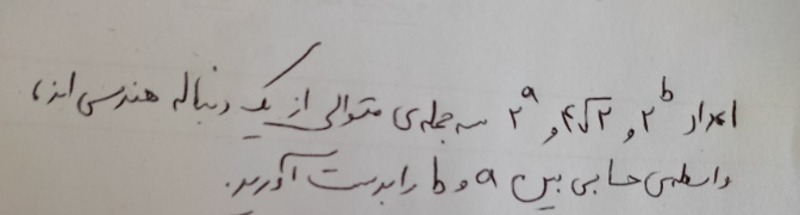 اعداد ۲^b و ۴√۲ و ۲^a سه جمله‌ی متوالی از یک دنباله هندسی‌اند،
واسطه‌ی حسابی بین a و b را بدست آورید.